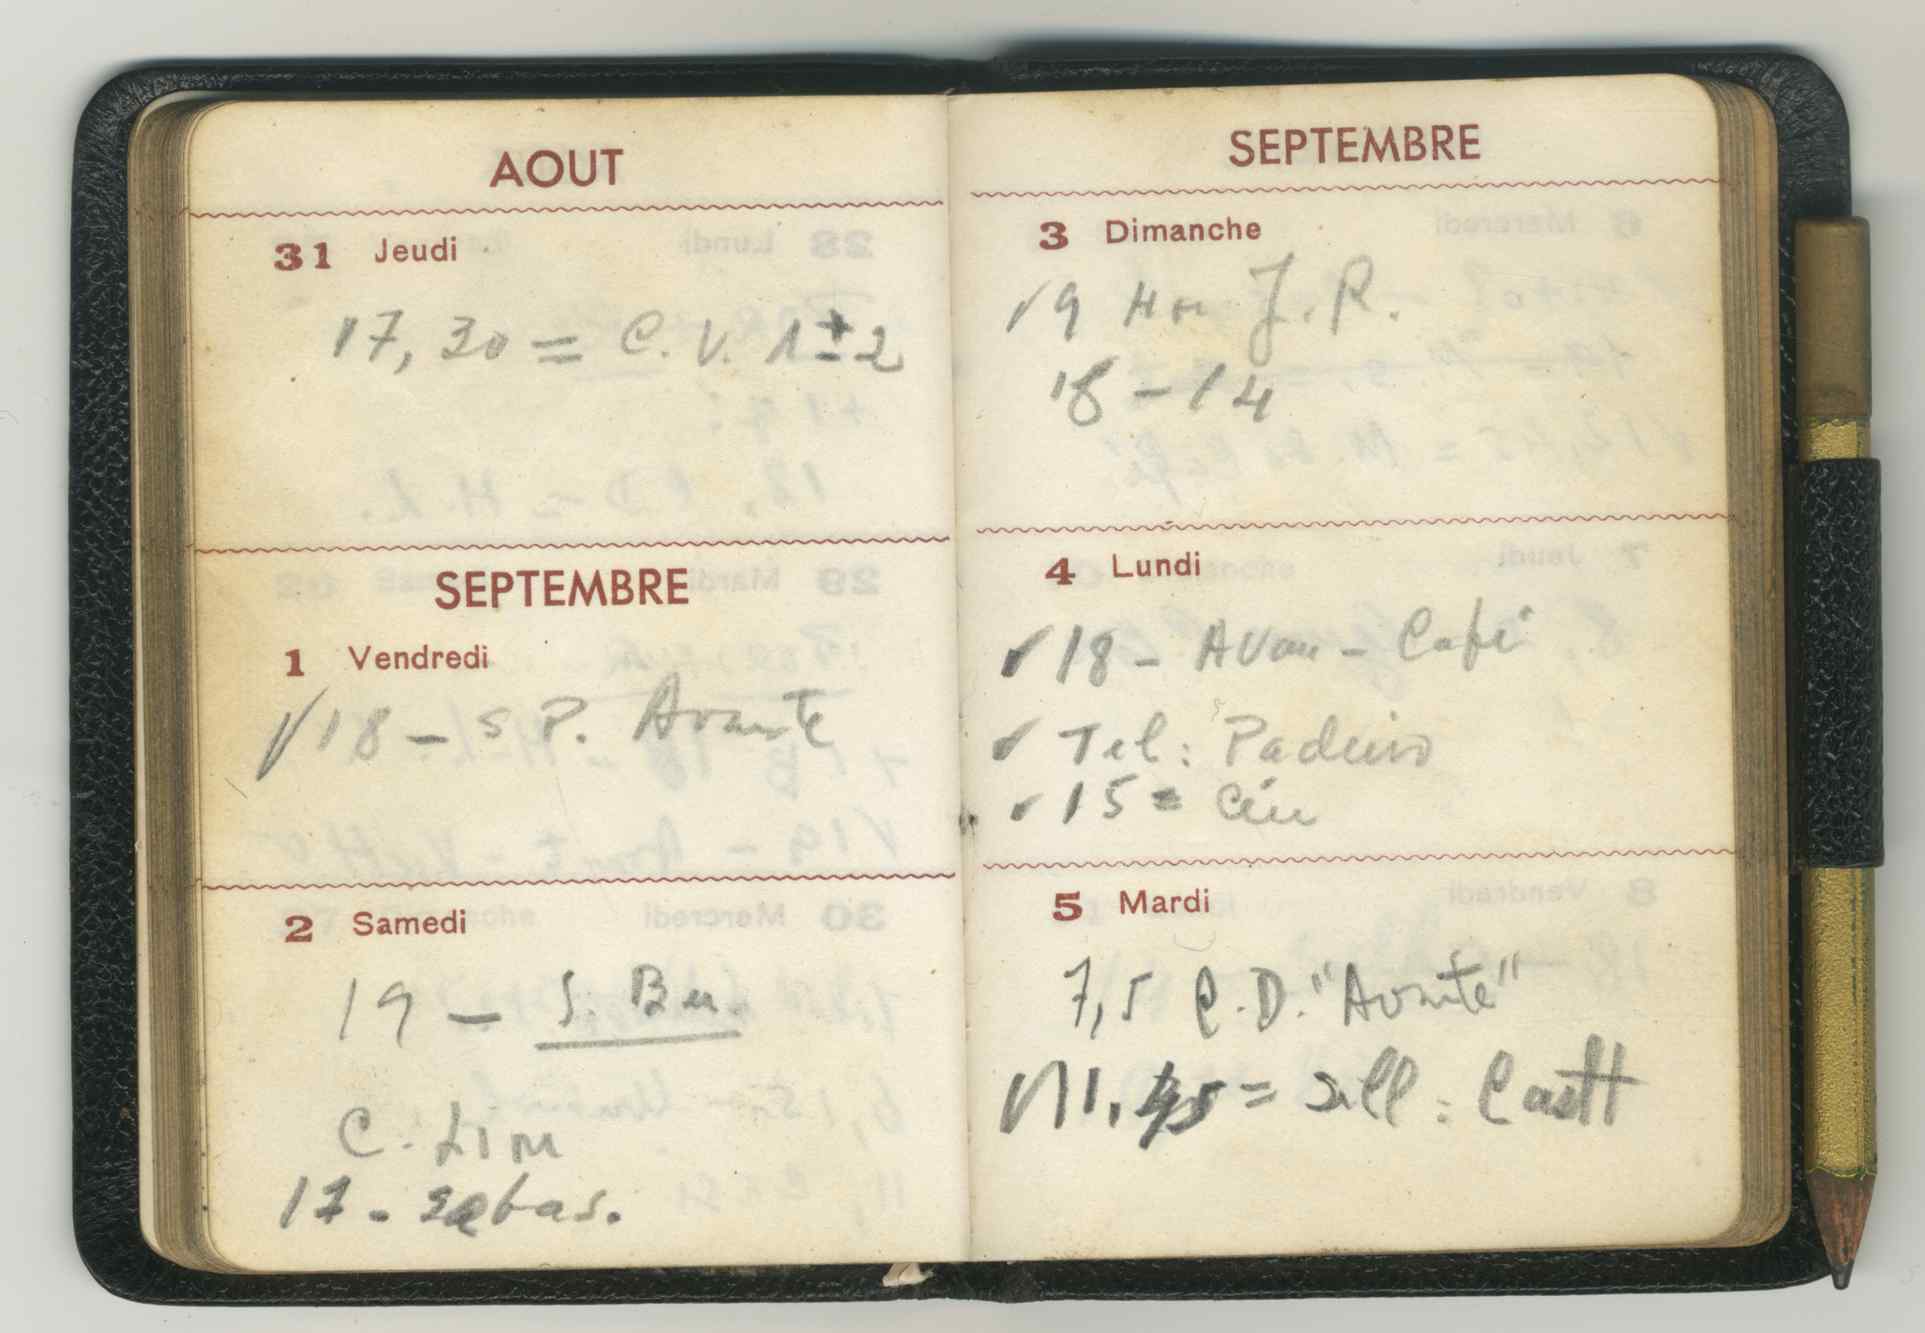 AOUT
31 Jeudi
17,30 = C. V. 1 ± 2
SEPTEMBRE
1 Vendredi
√18 - S P. Avante
2 Samedi
19 - S. Ben.
C. Lim
17 - Sebas.
SEPTEMBRE
3 Dimanche
√9 J. R.
18 - 14
4 Lundi
√18 - Avan - Café
√ Tel: Padeiro
√15 = Céu
5 Mardi
7,5 C. D. "Avante"
√11, = Sill : Castt